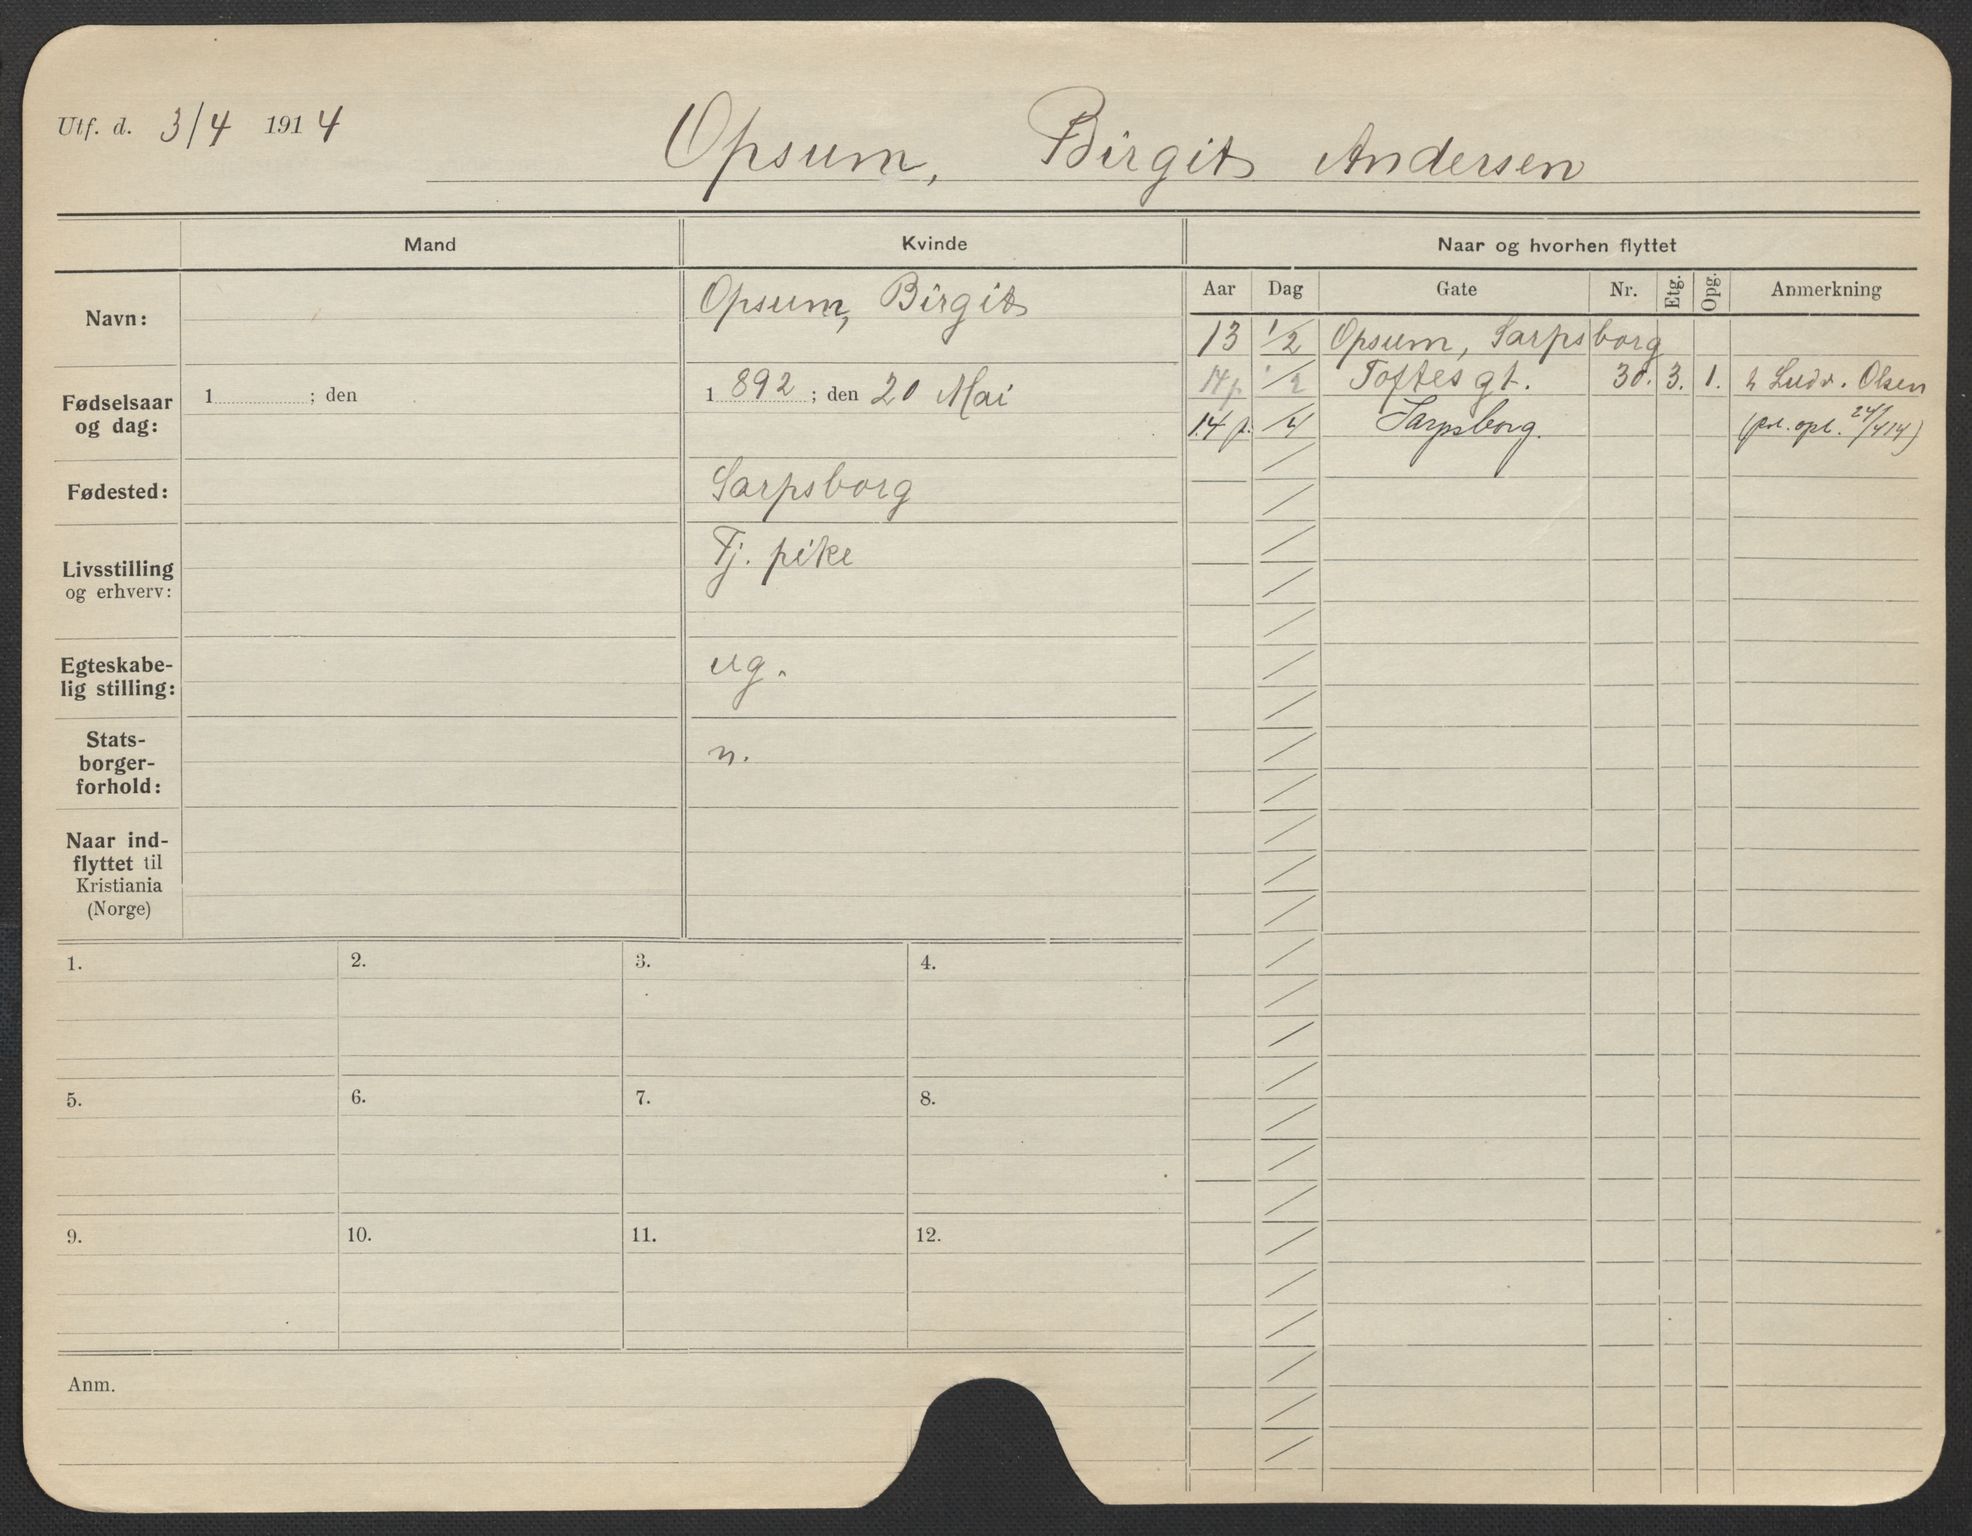 Utf. d. 3/4 1914
Opsum, Birgit Andersen
Mand
Kvinde
Naar og hvorhen flyttet
Aar Dag Gate Nr. Etg. Opg. Anmerkning
Navn:
Opsum, Birgit
Fødselsaar
og dag:
1 ; den
1 892 ; den 20 Mai
Fødested:
Sarpsborg
Livsstilling
og erhverv:
Tj. pike
Egteskabe-
lig stilling:
ug.
Stats-
borger-
forhold:
n.
Naar ind-
flyttet til
Kristiania
(Norge)
13 1/2 Opsum, Sarpsborg
14 p 1/2 Toftes gt. 30. 3. 1. h Ludv. Olsen
14 p. /4 Sarpsborg. (pol. opl. 24/4 14)
1. 2. 3. 4.
5. 6. 7. 8.
9. 10. 11. 12.
Anm.